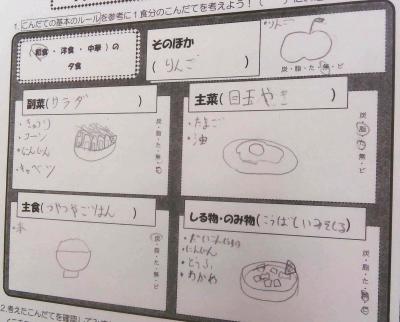 1.こんだての基本のルールを参考に1食分のこんだてを考えよう!
(和食・洋食・中華)の
夕食
そのほか
(りんご
・りんご
炭・脂・た・無・ビ
副菜(サラダ )
・きゅうり
・コーン
・にんじん
・キャベツ
炭・脂・た・無・ビ
主菜(目玉やき )
・たまご
・油
炭・脂・た・無・ビ
主食(つやつやごはん )
・米
炭・脂・た・無・ビ
しる物・のみ物(こうばしいみそしる)
・にんじん
・とうふ
・わかめ
炭・脂・た・無・ビ
2.考えたこんだてを確認して